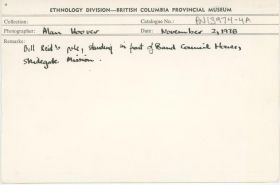 ETHNOLOGY DIVISION—BRITISH COLUMBIA PROVINCIAL MUSEUM
Collection: Catalogue No.: PN13974-4A
Photographer: Alan Hoover Date: November 2, 1978
Remarks:
Bill Reid's pole, standing in front of Band Council House,
Skidegate Mission.